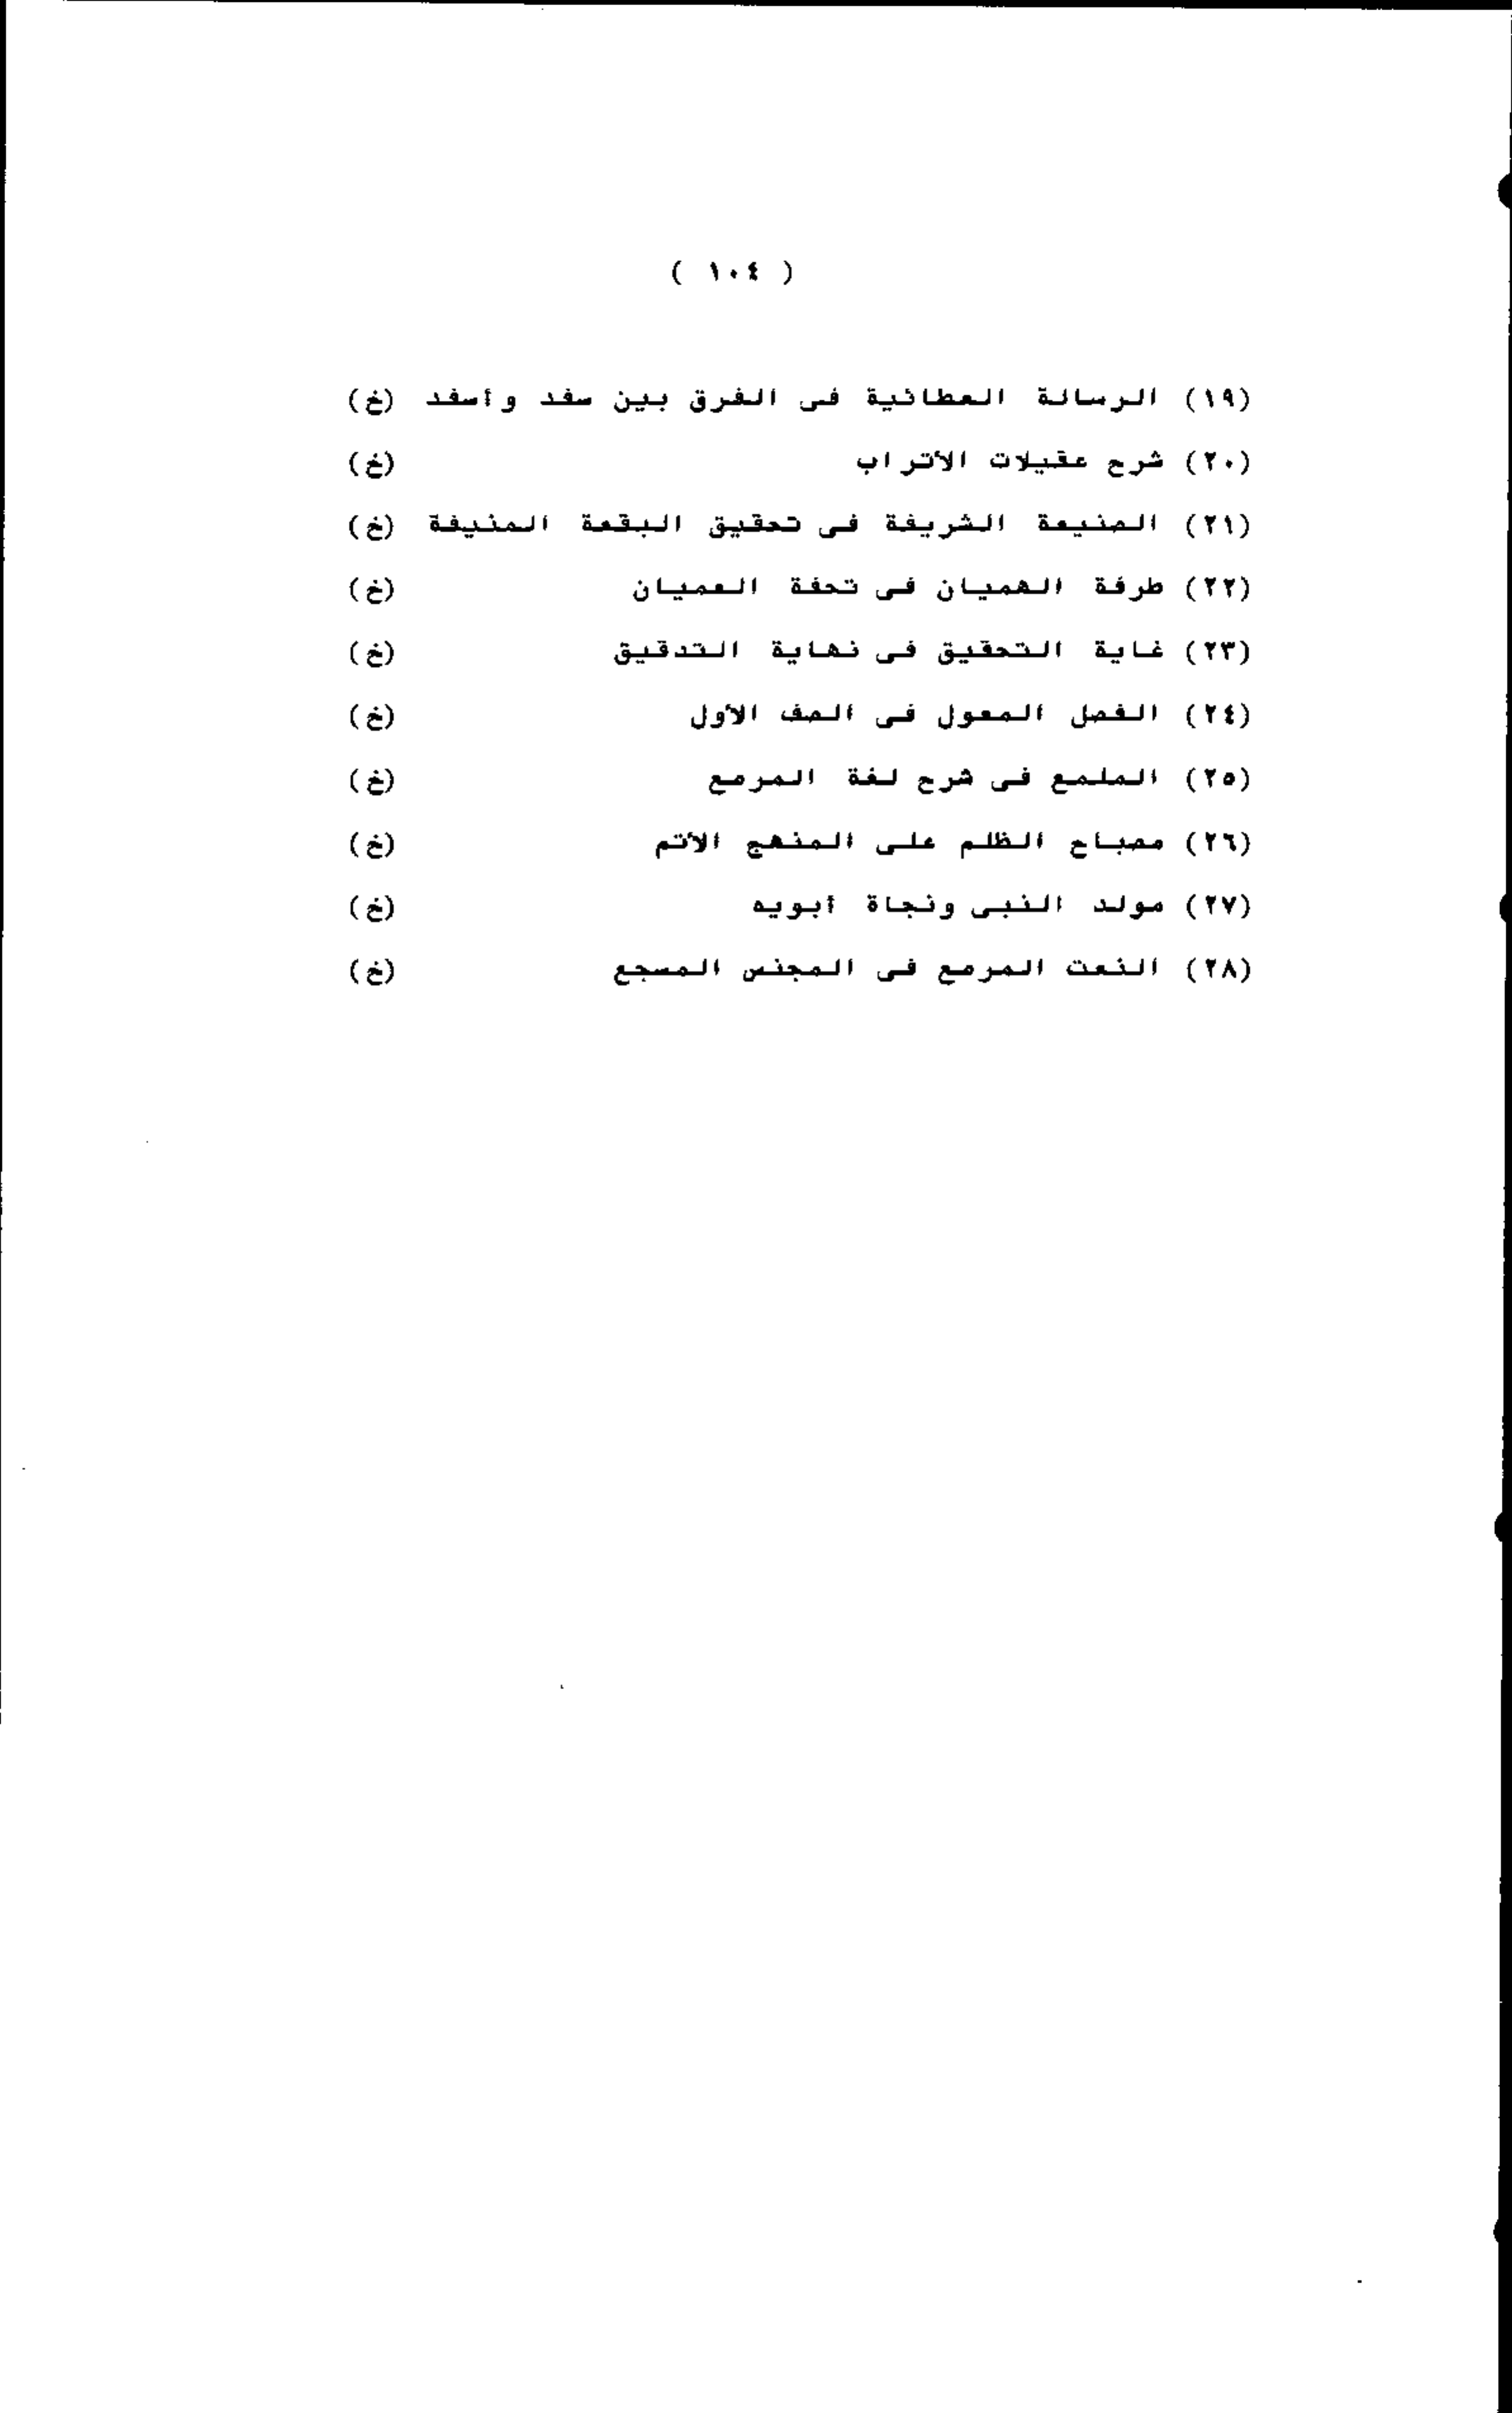 ( ١٠٤ )
(١٩) الرسالة العطائية فى الفرق بين صفد وأصفد (خ)
(٢٠) شرح عقيلات الأتراب (خ)
(٢١) الصنيعة الشريفة فى تحقيق البقعة المنيفة (خ)
(٢٢) طرفة الهميان فى تحفة العميان (خ)
(٢٣) غاية التحقيق فى نهاية التدقيق (خ)
(٢٤) الفصل المعول فى الصف الأول (خ)
(٢٥) الملمع فى شرح لغة المرصع (خ)
(٢٦) مصباح الظلم على المنهج الأتم (خ)
(٢٧) مولد النبى ونجاة أبويه (خ)
(٢٨) النعت المرصع فى المجنس المسجع (خ)